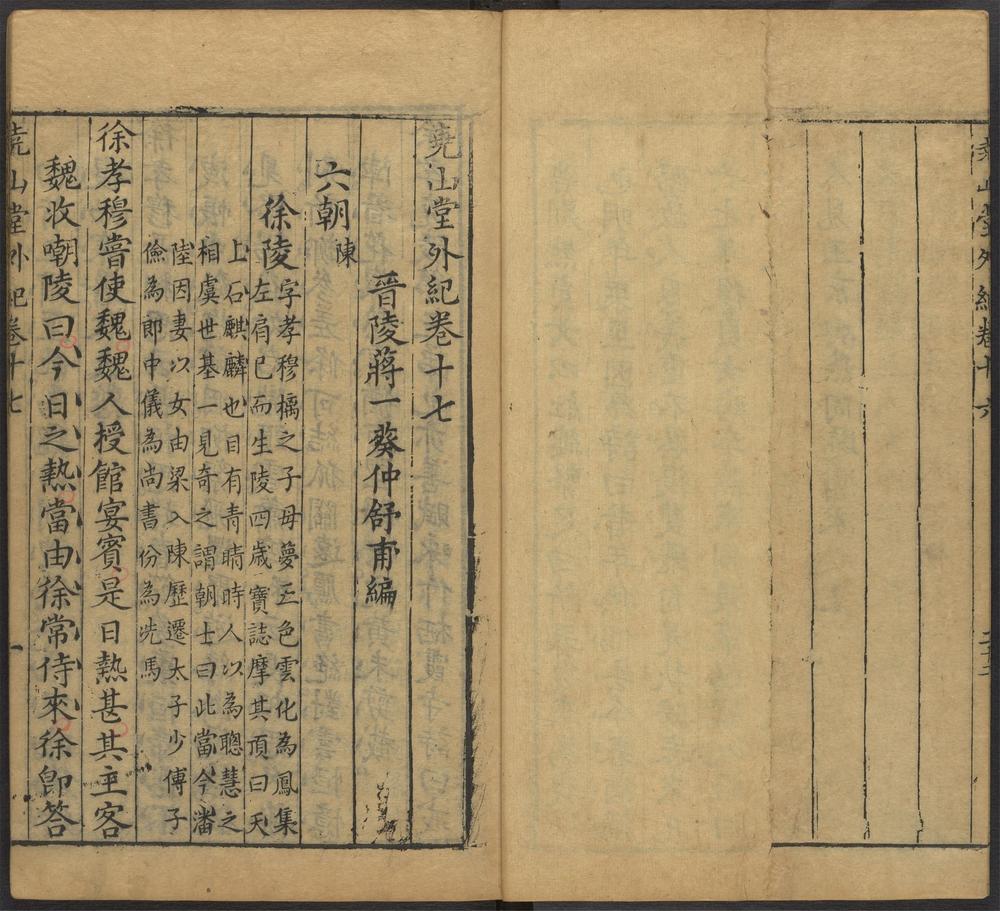 堯山堂外紀卷十六
堯山堂外紀卷十七
晉陵蔣一葵仲舒甫編
六朝
陳
徐陵
字孝穆摛之子母夢五色雲化為鳳集
左肩已而生陵四歳寶誌摩其頂曰天
上石麒麟也目有青睛時人以為聰慧之
相虞世基一見奇之謂朝士曰此當今潘
陸因妻以女由梁入陳歷遷太子少傅子
儉為郎中儀為尚書份為洗馬
徐孝穆嘗使魏魏人授館宴賓是日熱甚其主客
魏收嘲陵曰今日之熱當由徐常侍來徐卽答
堯山堂外紀卷十七
一